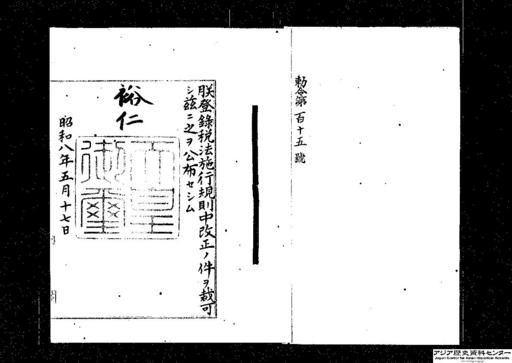 勅令第百十五號
朕登錄税法施行規則中改正ノ件ヲ裁可
シ茲ニ之ヲ公布セシム
裕仁
天皇御璽
昭和八年五月十七日
アジア歴史資料センター
Japan Center for Asian Historical Records